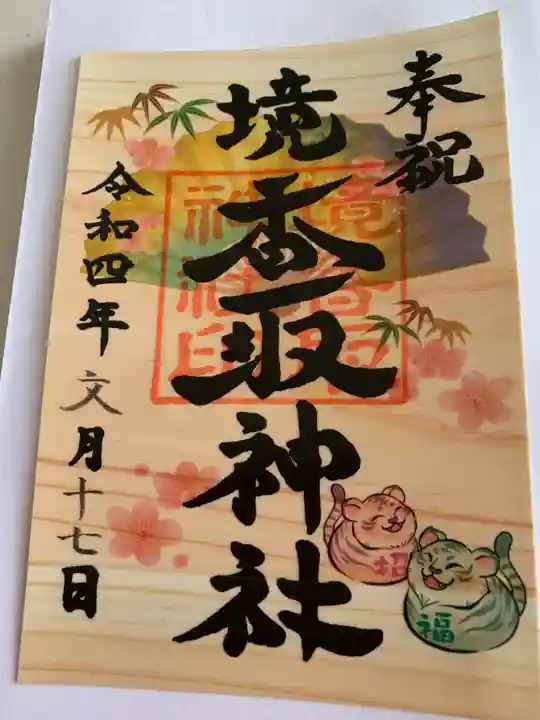 奉祝
境香取神社
令和四年文月十七日
境香取
神社印
招
福